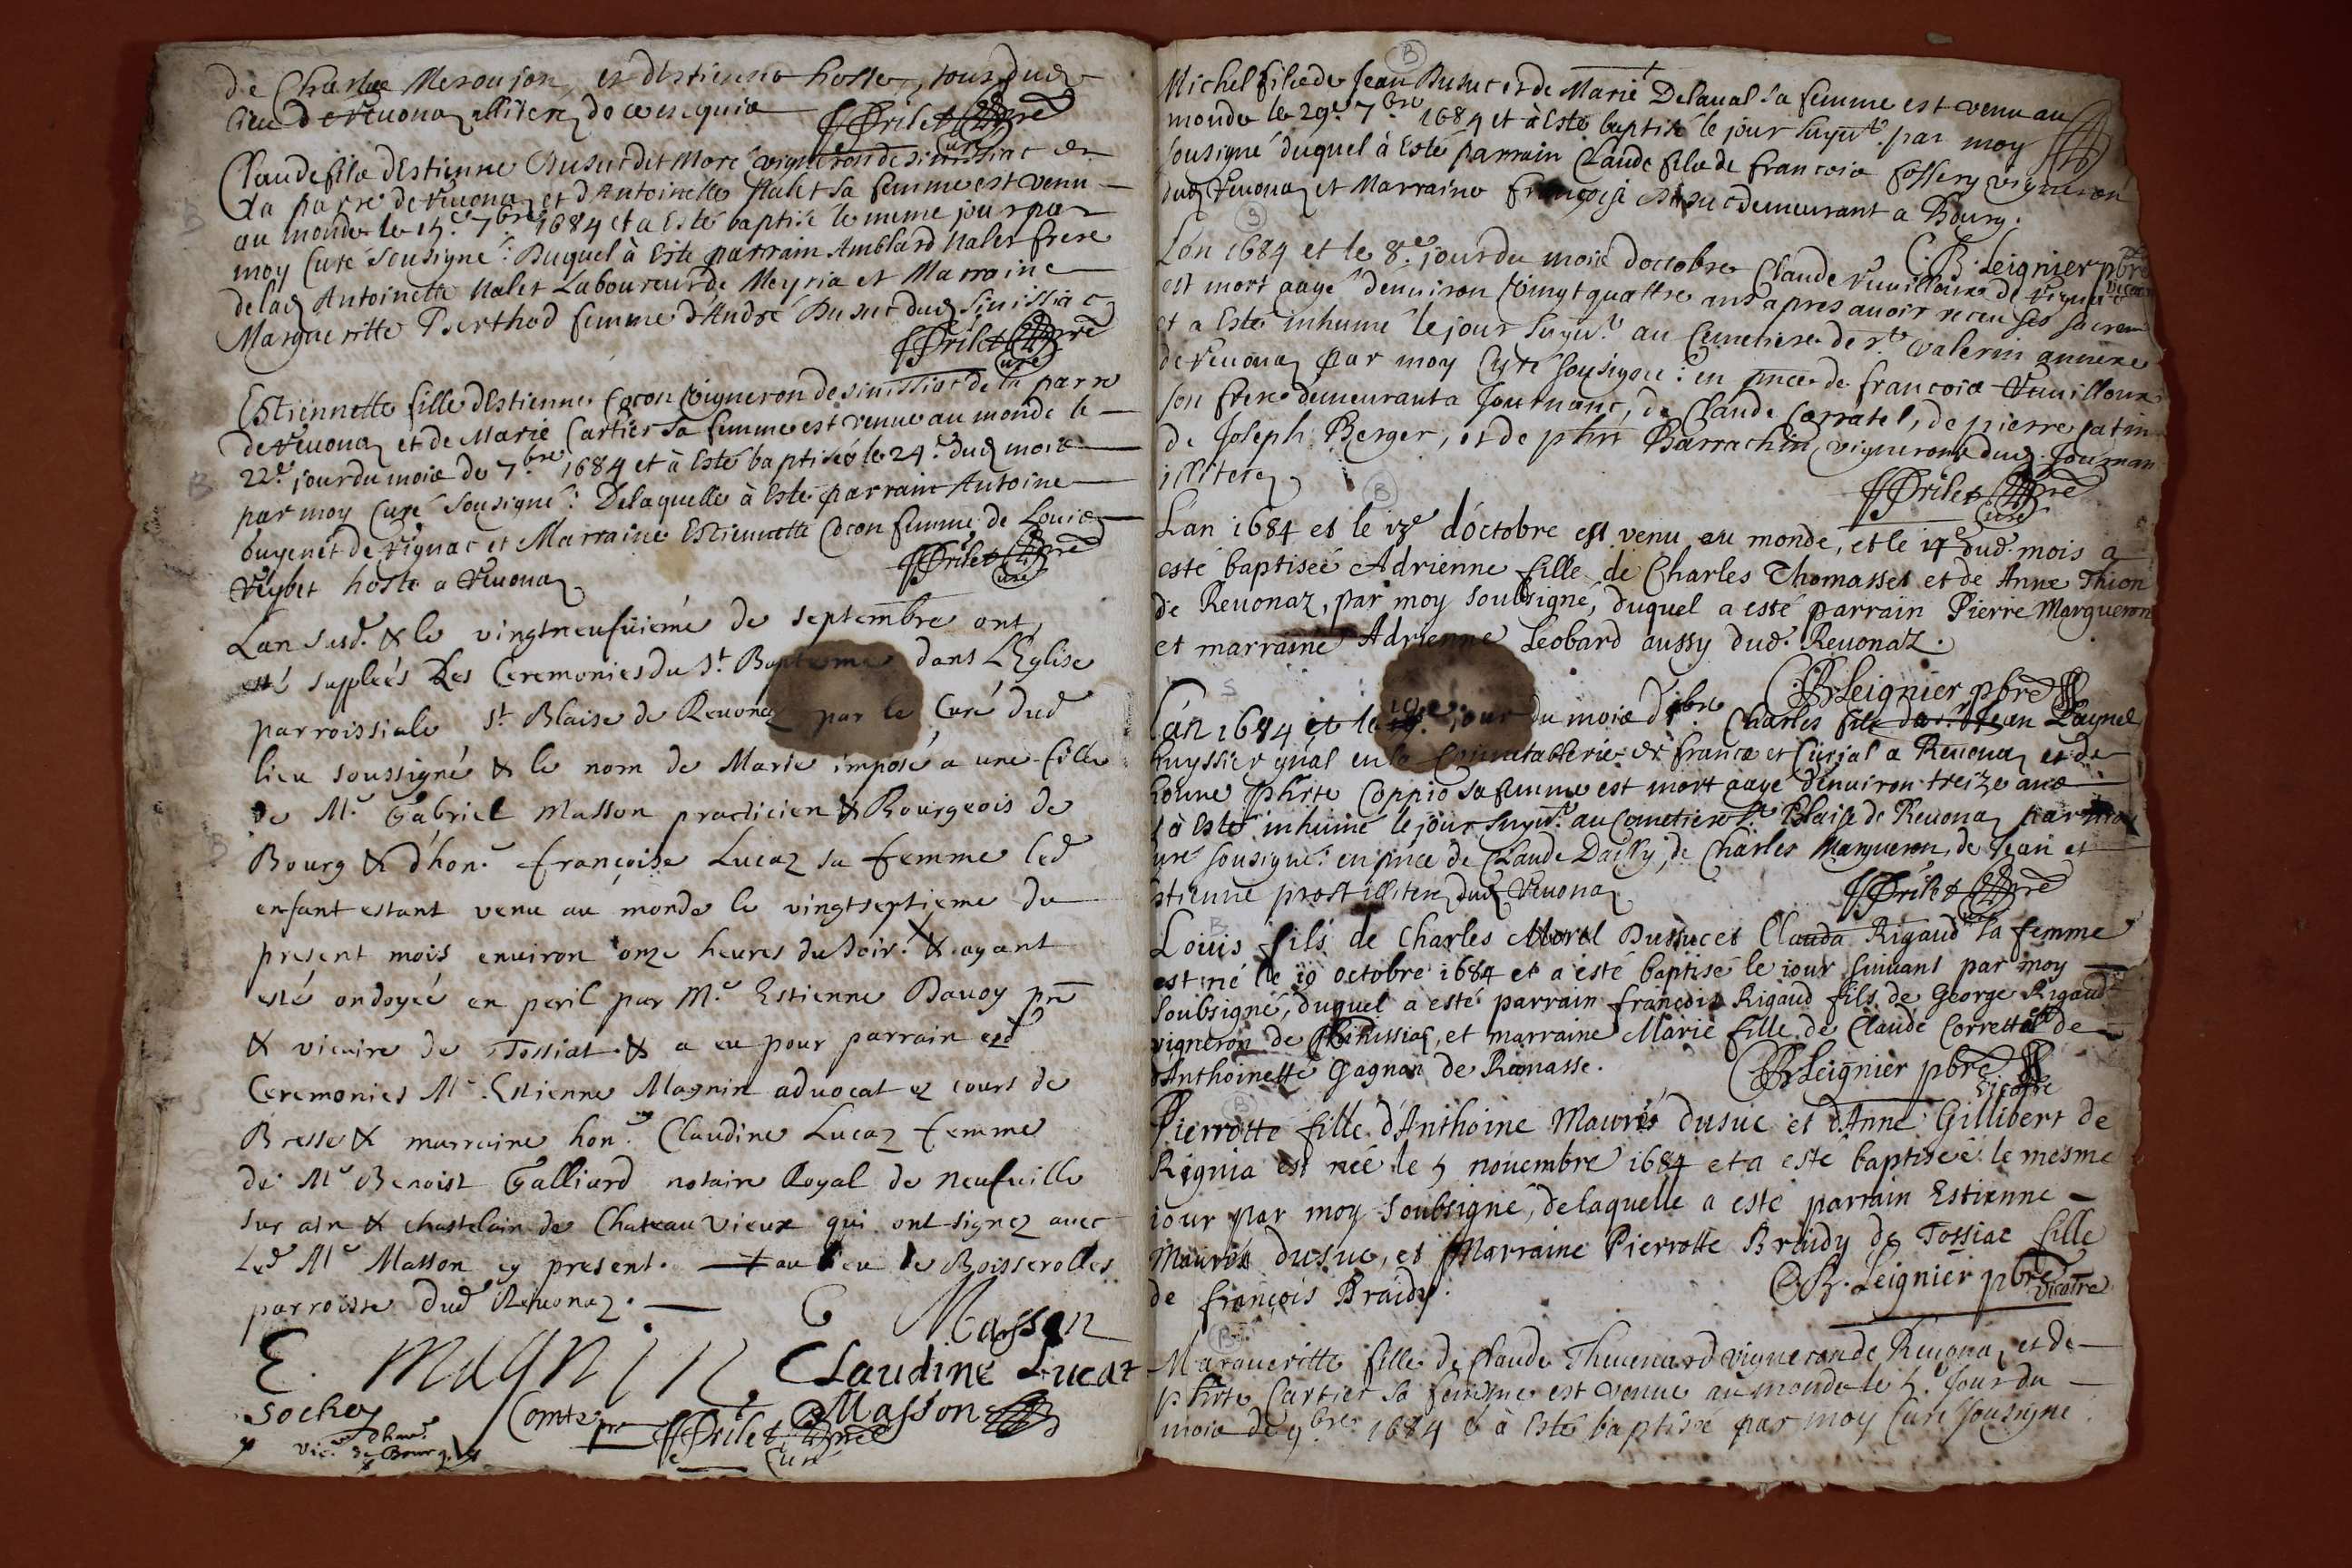 de Charles Meroujon, et dEstienne hoste, tous dud
lieu de Revona illiterz do ce enequis
JJ Prilet pbre
Curé
Claude fils dEstienne Dusuc dit Moré vigneron de sinissiac de
la parre de Revonaz et d'Antoinette Nalet sa femme est venu
au monde le 15e 7bre 1684 et a Esté baptisé le mime jour par
moy Curé sousigné: Duquel à Esté parrain Amblard Nalet frere
delad Antoinette Nalet Laboureur de Meyria et Marraine
Margueritte Berthod femme d'André Dusuc dud Sinissiac
JJ Prilet pbre
Curé
Estiennette fille dEstienne Cocon Vigneron de sinissiat de la parre
de Revonaz et de Marie Cartier sa femme est venue au monde le
22e jour du mois de 7bre 1684 et à Esté baptisée le 24e dud mois
par moy Curé sousigné: Delaquelle à Esté parrain Antoine
buyenet de Rignac et Marraine Estiennette Cocon femme de Louis
Veybet hoste a Revonaz
JJ Prilet pbre
Curé
Lan susd. & le vingtneufuiéme de septembre ont
esté supléés Les Ceremonies du St. Baptesme dans L'Eglise
parroissiale St Blaise de Revonaz par le Curé dud
lieu soussigné & le nom de Marie imposé a une fille
de Mr. Gabriel Masson practicien & Bourgeois de
Bourg & d'hon. françoise Lucaz sa femme led
enfant estant venu au monde le vingtseptieme du
present mois environ onze heures du soir. & ayant
esté ondoyéé en peril par Mr. Estienne Davoy pre
& vicaire de Tossiat & a eu pour parrain esd
Ceremonies Mr. Estienne Magnin advocat ez cours de
Bresse & marraine hon. Claudine Lucaz femme
de Mr Benoist Galliard notaire Royal de neufville
sur ain & chastelain de Chateauvieux qui ont signez avec
Led Mr Masson cy present. + au lieu de Boisserolles
parroisse dud Revonaz.
G Masson
E. Magnin Claudine Lucaz
Sochay Comte pre Masson
vic. de Bourg JJ Prilet pbre
Curé
B
Michel fils de Jean Dusuc et de Marie Delaval sa femme est venu au
monde le 29e 7bre 1684 et à Esté baptisé le jour suyvt. par moy
sousigné duquel à Esté parrain Claude fils de francois fossery vigneron
dud Revonaz et Marraine françoise Dusuc demeurant a Bourg.
C. B. Leignier pbre
Vicaire
L'an 1684 et le 8e jour du mois doctobre Claude Vuilloux de
est mort aagé denuiron Vingt quattre ans apres avoir receu ses sacrem
et a Esté inhumé le jour suyvt. au Cemetiere de St Valerin annexe
de Revonaz par moy Curé sousigné: en pnce de francois Vuilloux
son frere demeurant a Journanc, de Claude Corratel, de pierre catin
de Joseph Berger, et de phrt Barrachin, vignerons dud. Journan
illiterz
JJ Prilet pbre
Curé
B
L'an 1684 et le 13e d'octobre est venu au monde, et le 17e dud. mois a
esté baptiseé Adrienne fille de Charles Thomasset et de Anne Thion
de Revonaz, par moy soubsigné, duquel a esté parrain Pierre Margueron
et marraine Adrienne Leobard aussy dud. Revonaz.
C. B. Leignier pbre
S
L'an 1684 et le 19e jour du mois d'8bre Charles fils de Sr. Jean Laynel
huyssier gnal en la Connetablerie de france et Curial a Revonaz et de
honne phrte Coppio sa femme est mort aagé denuiron treize ans
à Esté inhumé le jour suyvt. au Cemetiere St Blaise de Revonaz par moy
curé sousigné: en pnce de Claude Dailly, de Charles Margueron, de Jean et
Estienne prost illiterz dud Revonaz
JJ Prilet pbre
B
Louis fils de Charles Morel Dusuc et Clauda Rigaud sa femme
est né le 19 octobre 1684 et a esté baptisé le iour suivant par moy
soubsigné, duquel a esté parrain françois Rigaud fils de George Rigaud
vigneron de Sinissiac, et marraine Marie fille de Claude Correttel de
d'Anthoinette Gagnon de Romasse.
C. B. Leignier pbre
Vicaire
B
Pierrotte fille d'Anthoine Mauris dusuc et d'Anne Gillibert de
Rignia est néé le 5 novembre 1684 et a esté baptiseé le mesme
iour par moy soubsigné, de laquelle a esté parrain Estienne
Mauris dusuc, et Marraine Pierrotte Braidy de Tossiac fille
de françois Braidy.
C. B. Leignier pbre
Vicaire
B
Margueritte fille de Claude Thevenard vigneron de Revonaz et de
phrte Cartier sa femme est venue au monde le 5. Jour du
mois de 9bre 1684 & à Esté baptisée par moy Curé sousigné